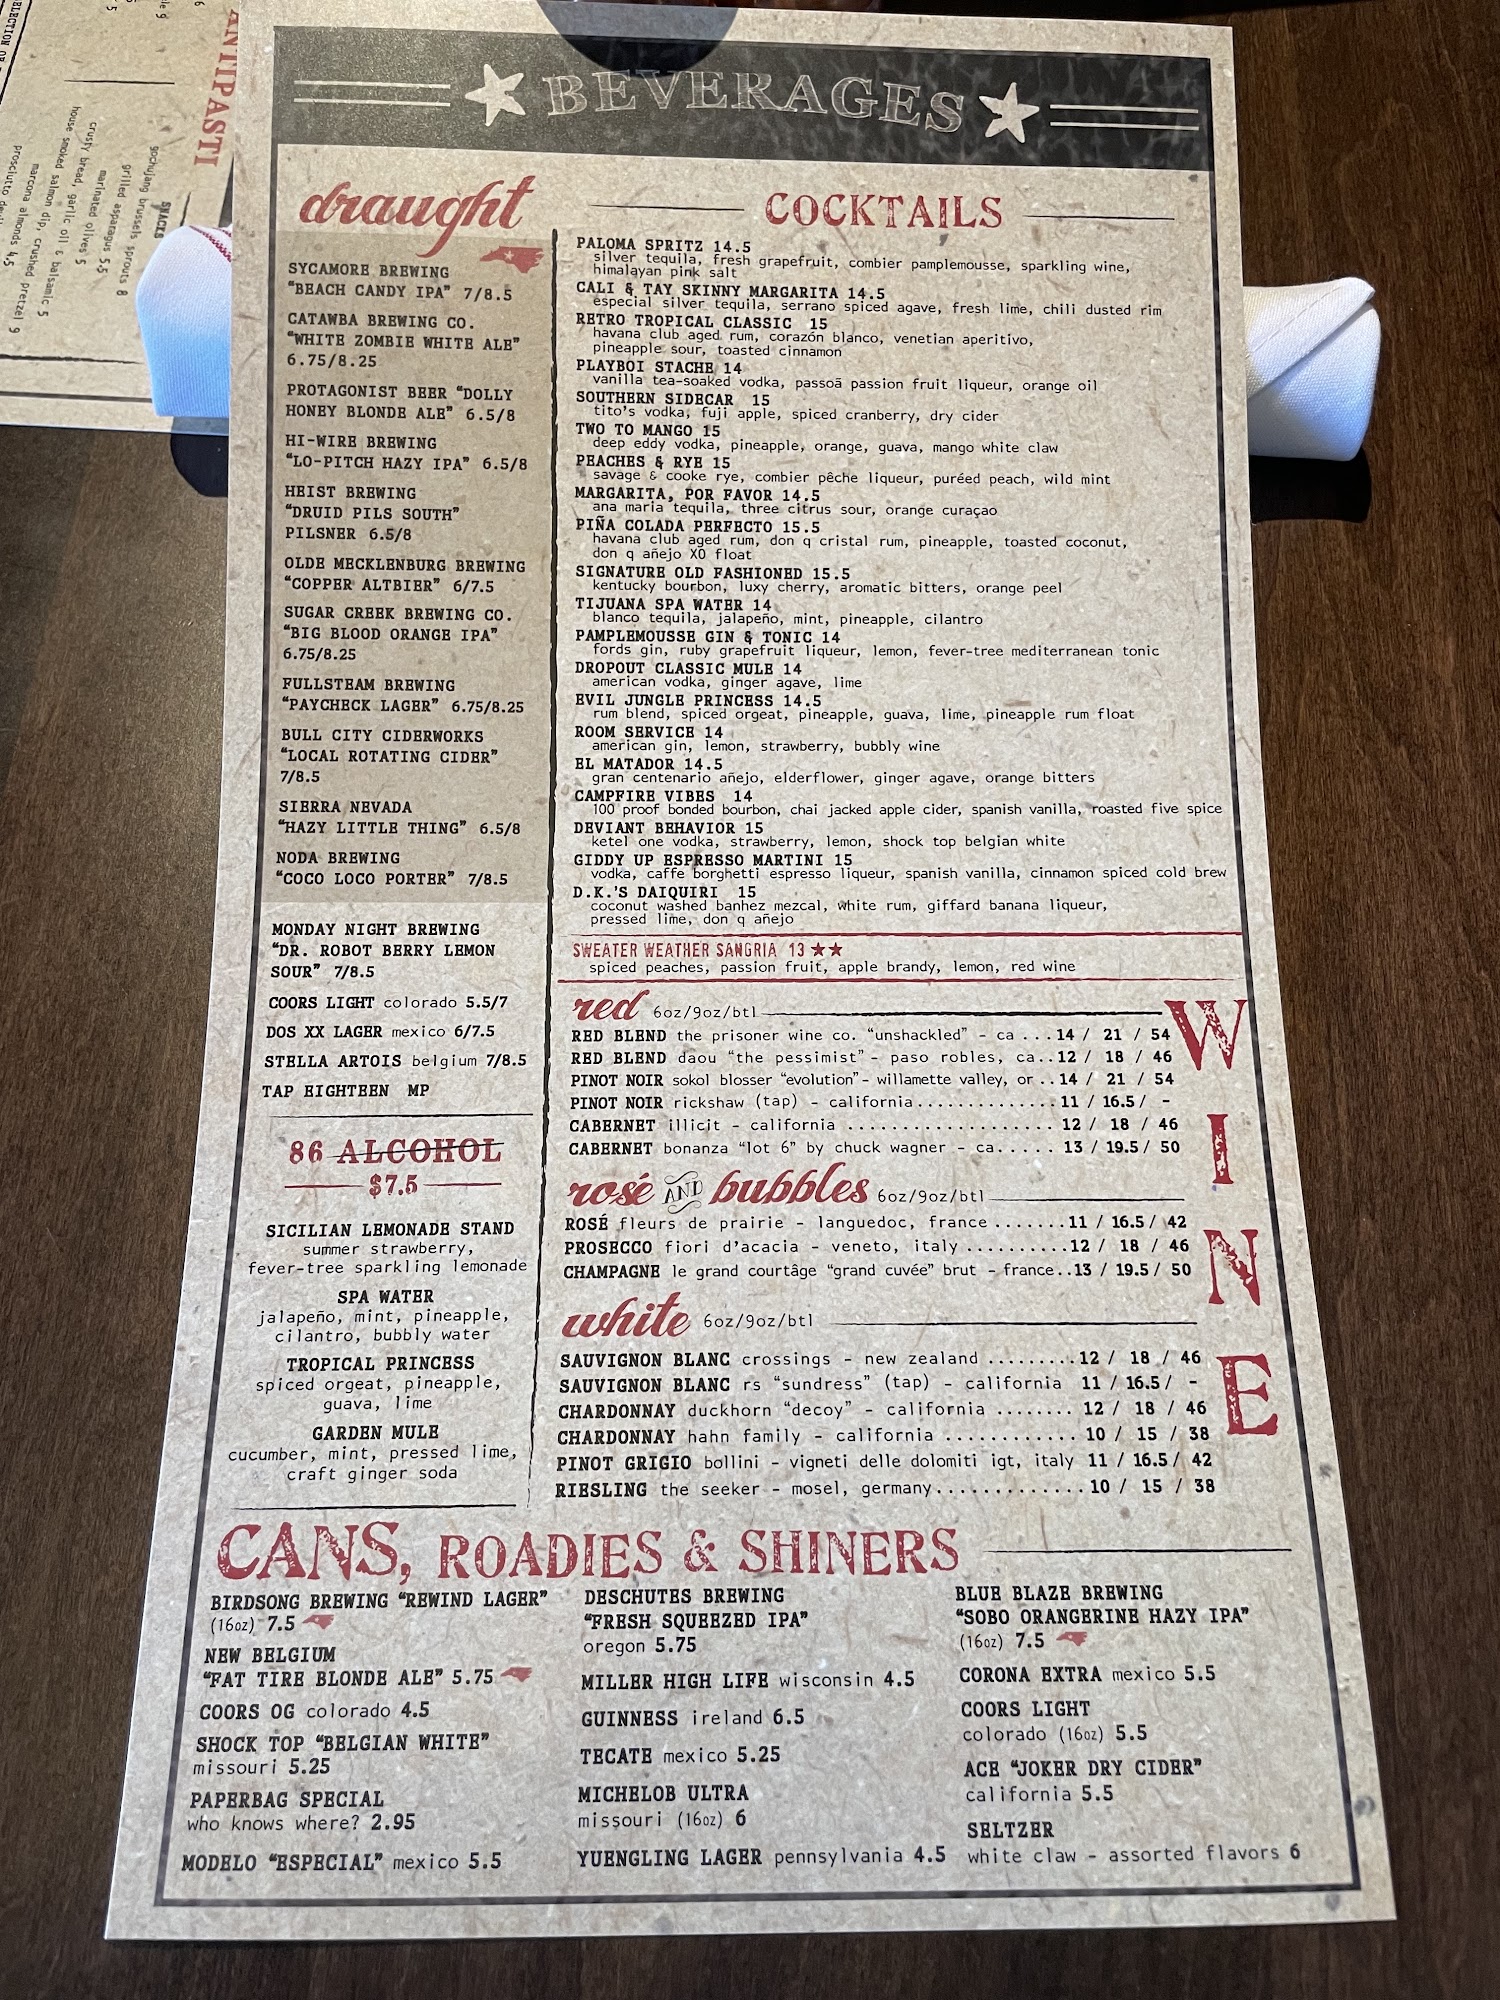 BEVERAGES
draught
SYCAMORE BREWING
"BEACH CANDY IPA" 7/8.5
CATAWBA BREWING CO.
"WHITE ZOMBIE WHITE ALE"
6.75/8.25
PROTAGONIST BEER "DOLLY
HONEY BLONDE ALE" 6.5/8
HI-WIRE BREWING
"LO-PITCH HAZY IPA" 6.5/8
HEIST BREWING
"DRUID PILS SOUTH"
PILSNER 6.5/8
OLDE MECKLENBURG BREWING
"COPPER ALTBIER" 6/7.5
SUGAR CREEK BREWING CO.
"BIG BLOOD ORANGE IPA"
6.75/8.25
FULLSTEAM BREWING
"PAYCHECK LAGER" 6.75/8.25
BULL CITY CIDERWORKS
"LOCAL ROTATING CIDER"
7/8.5
SIERRA NEVADA
"HAZY LITTLE THING" 6.5/8
NODA BREWING
"COCO LOCO PORTER" 7/8.5
MONDAY NIGHT BREWING
"DR. ROBOT BERRY LEMON
SOUR" 7/8.5
COORS LIGHT colorado 5.5/7
DOS XX LAGER mexico 6/7.5
STELLA ARTOIS belgium 7/8.5
TAP EIGHTEEN MP
86 ALCOHOL
$7.5
SICILIAN LEMONADE STAND
summer strawberry,
fever-tree sparkling lemonade
SPA WATER
jalapeño, mint, pineapple,
cilantro, bubbly water
TROPICAL PRINCESS
spiced orgeat, pineapple,
guava, lime
GARDEN MULE
cucumber, mint, pressed lime,
craft ginger soda
COCKTAILS
PALOMA SPRITZ 14.5
silver tequila, fresh grapefruit, combier pamplemousse, sparkling wine,
himalayan pink salt
CALI & TAY SKINNY MARGARITA 14.5
especial silver tequila, serrano spiced agave, fresh lime, chili dusted rim
RETRO TROPICAL CLASSIC 15
havana club aged rum, corazón blanco, venetian aperitivo,
pineapple sour, toasted cinnamon
PLAYBOI STACHE 14
vanilla tea-soaked vodka, passoã passion fruit liqueur, orange oil
SOUTHERN SIDECAR 15
tito's vodka, fuji apple, spiced cranberry, dry cider
TWO TO MANGO 15
deep eddy vodka, pineapple, orange, guava, mango white claw
PEACHES & RYE 15
savage & cooke rye, combier pêche liqueur, puréed peach, wild mint
MARGARITA, POR FAVOR 14.5
ana maria tequila, three citrus sour, orange curaçao
PIÑA COLADA PERFECTO 15.5
havana club aged rum, don q cristal rum, pineapple, toasted coconut,
don q añejo XO float
SIGNATURE OLD FASHIONED 15.5
kentucky bourbon, luxy cherry, aromatic bitters, orange peel
TIJUANA SPA WATER 14
blanco tequila, jalapeño, mint, pineapple, cilantro
PAMPLEMOUSSE GIN & TONIC 14
fords gin, ruby grapefruit liqueur, lemon, fever-tree mediterranean tonic
DROPOUT CLASSIC MULE 14
american vodka, ginger agave, lime
EVIL JUNGLE PRINCESS 14.5
rum blend, spiced orgeat, pineapple, guava, lime, pineapple rum float
ROOM SERVICE 14
american gin, lemon, strawberry, bubbly wine
EL MATADOR 14.5
gran centenario añejo, elderflower, ginger agave, orange bitters
CAMPFIRE VIBES 14
100 proof bonded bourbon, chai jacked apple cider, spanish vanilla, roasted five spice
DEVIANT BEHAVIOR 15
ketel one vodka, strawberry, lemon, shock top belgian white
GIDDY UP ESPRESSO MARTINI 15
vodka, caffe borghetti espresso liqueur, spanish vanilla, cinnamon spiced cold brew
D.K.'S DAIQUIRI 15
coconut washed banhez mezcal, white rum, giffard banana liqueur,
pressed lime, don q añejo
SWEATER WEATHER SANGRIA 13 ★★
spiced peaches, passion fruit, apple brandy, lemon, red wine
WINE
red 6oz/9oz/btl
RED BLEND the prisoner wine co. "unshackled" - ca ... 14 / 21 / 54
RED BLEND daou "the pessimist" - paso robles, ca.. 12 / 18 / 46
PINOT NOIR sokol blosser "evolution" - willamette valley, or .. 14 / 21 / 54
PINOT NOIR rickshaw (tap) - california.............. 11 / 16.5 / -
CABERNET illicit - california ................... 12 / 18 / 46
CABERNET bonanza "lot 6" by chuck wagner - ca..... 13 / 19.5 / 50
rosé AND bubbles 6oz/9oz/btl
ROSÉ fleurs de prairie - languedoc, france ....... 11 / 16.5 / 42
PROSECCO fiori d'acacia - veneto, italy .......... 12 / 18 / 46
CHAMPAGNE le grand courtâge "grand cuvée" brut - france.. 13 / 19.5 / 50
white 6oz/9oz/btl
SAUVIGNON BLANC crossings - new zealand ......... 12 / 18 / 46
SAUVIGNON BLANC rs "sundress" (tap) - california 11 / 16.5 / -
CHARDONNAY duckhorn "decoy" - california ........ 12 / 18 / 46
CHARDONNAY hahn family - california ............ 10 / 15 / 38
PINOT GRIGIO bollini - vigneti delle dolomiti igt, italy 11 / 16.5 / 42
RIESLING the seeker - mosel, germany............. 10 / 15 / 38
CANS, ROADIES & SHINERS
BIRDSONG BREWING "REWIND LAGER"
(16oz) 7.5
NEW BELGIUM
"FAT TIRE BLONDE ALE" 5.75
COORS OG colorado 4.5
SHOCK TOP "BELGIAN WHITE"
missouri 5.25
PAPERBAG SPECIAL
who knows where? 2.95
MODELO "ESPECIAL" mexico 5.5
DESCHUTES BREWING
"FRESH SQUEEZED IPA"
oregon 5.75
MILLER HIGH LIFE wisconsin 4.5
GUINNESS ireland 6.5
TECATE mexico 5.25
MICHELOB ULTRA
missouri (16oz) 6
YUENGLING LAGER pennsylvania 4.5
BLUE BLAZE BREWING
"SOBO ORANGERINE HAZY IPA"
(16oz) 7.5
CORONA EXTRA mexico 5.5
COORS LIGHT
colorado (16oz) 5.5
ACE "JOKER DRY CIDER"
california 5.5
SELTZER
white claw - assorted flavors 6
ANTIPASTI
SNACKS
gochujang brussels sprouts 8
grilled asparagus 5.5
marinated olives 5
crusty bread, garlic oil & balsamic 5
house smoked salmon dip, crushed pretzel 9
marcona almonds 4.5
prosciutto